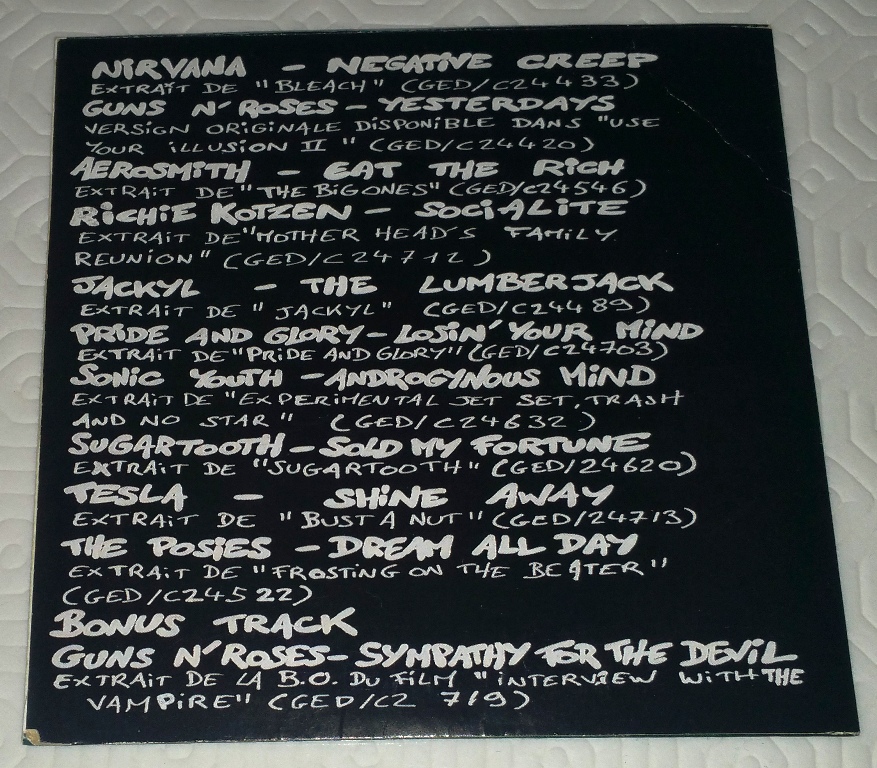 NIRVANA - NEGATIVE CREEP
EXTRAIT DE "BLEACH" (GED/C24433)
GUNS N' ROSES - YESTERDAYS
VERSION ORIGINALE DISPONIBLE DANS "USE
YOUR ILLUSION II" (GED/C24420)
AEROSMITH - EAT THE RICH
EXTRAIT DE "THE BIG ONES" (GED/C24546)
RICHIE KOTZEN - SOCIALITE
EXTRAIT DE "MOTHER HEAD'S FAMILY
REUNION" (GED/C24712)
JACKYL - THE LUMBERJACK
EXTRAIT DE "JACKYL" (GED/C24489)
PRIDE AND GLORY - LOSIN' YOUR MIND
EXTRAIT DE "PRIDE AND GLORY" (GED/C24703)
SONIC YOUTH - ANDROGYNOUS MIND
EXTRAIT DE "EXPERIMENTAL JET SET, TRASH
AND NO STAR" (GED/C24632)
SUGARTOOTH - SOLD MY FORTUNE
EXTRAIT DE "SUGARTOOTH" (GED/24620)
TESLA - SHINE AWAY
EXTRAIT DE "BUST A NUT" (GED/24713)
THE POSIES - DREAM ALL DAY
EXTRAIT DE "FROSTING ON THE BEATER"
(GED/C24522)
BONUS TRACK
GUNS N' ROSES - SYMPATHY FOR THE DEVIL
EXTRAIT DE LA B.O. DU FILM "INTERVIEW WITH THE
VAMPIRE" (GED/C2 719)